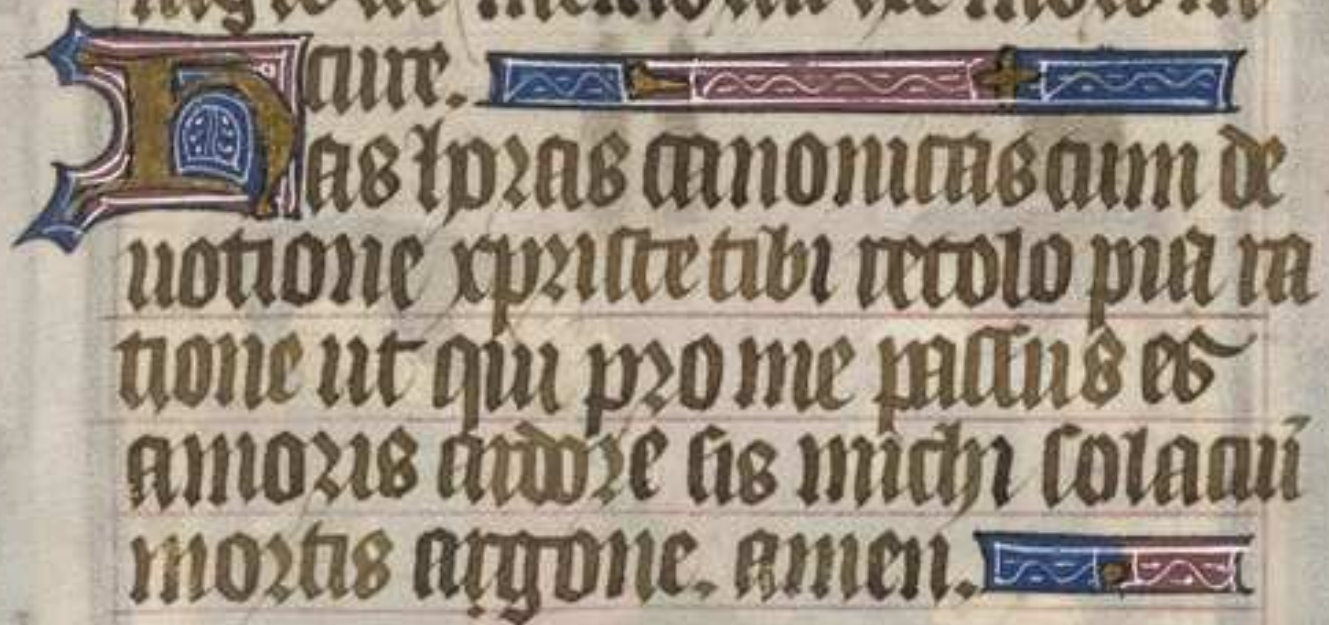 cure.
Has horas canonicas cum de
uotione xpriste tibi recolo pia ra
tione ut qui pro me passus es
amoris ardore sis michi solaciū
mortis argone. amen.